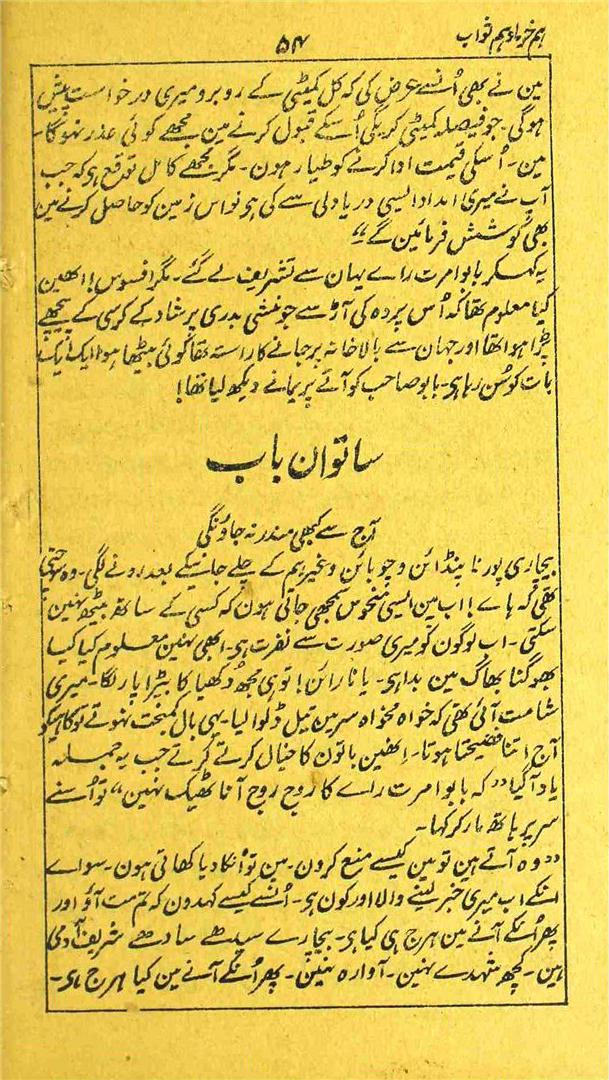 ہم خرما و ہم ثواب
۵۴
مین نے بھی اُنسے عرض کی کہ کل کمیٹی کے روبرو میری درخواست پیش
ہوگی۔ جو فیصلہ کمیٹی کریگی اُسکے قبول کرنے مین مجھے کوئی عذر نہوگا۔
مین۔ اُسکی قیمت ادا کرنے کو طیار ہون۔ مگر مجھے کامل توقع ہی کہ جب
آپ نے میری امداد ایسی دریا دلی سے کی ہی تو اس زمین کو حاصل کرنے مین
بھی کوشش فرمائین گے"
یہ کہکر بابو امرت راے یہان سے تشریف لے گئے۔ مگر افسوس! اُنھین
کیا معلوم تھا کہ اُس پردہ کی آڑ سے جو منشی بدری پرشاد کے کرسی کے پیچھے
پڑا ہوا تھا اور جہان سے بالا خانہ پر جانے کا راستہ تھا کوئی بیٹھا ہوا ایک ایک
بات کو سُن رہا ہی۔ بابو صاحب کو آتے پریما نے دیکھ لیا تھا!
ساتوان باب
آج سے کبھی مندر نہ جاؤنگی
بیچاری پورنا پنڈائن و چوبائن وغیرہم کے چلے جانیکے بعد رونے لگی۔ وہ سوچتی
تھی کہ ہاے! اب مین ایسی منحوس سمجھی جاتی ہون کہ کسی کے ساتھ بیٹھ نہین
سکتی۔ اب لوگون کو میری صورت سے نفرت ہی۔ ابھی نہین معلوم کیا کیا
بھوگنا بھاگ مین بدا ہی۔ یا نارائن! تو ہی مجھ دُکھیا کا بیڑا پار لگا۔ میری
شامت آئی تھی کہ خواہ مخواہ سر مین تیل ڈلوا لیا۔ یہی بال کمبخت نہوتے تو کاہیکو
آج اتنا فضیحتا ہوتا۔ اِنھین باتون کا خیال کرتے کرتے جب یہ جملہ
یاد آگیا "کہ بابو امرت راے کا روج روج آنا ٹھیک نہین" تو اُسنے
سر پر ہاتھ مار کر کہا۔
"وہ آتے ہین تو مین کیسے منع کرون۔ مین تو اُنکا دیا کھاتی ہون۔ سواے
اُنکے اب میری خبر لینے والا اور کون ہی۔ اُنسے کیسے کہدون کہ تم مت آؤ اور
پھر اُنکے آنے مین ہرج ہی کیا ہی۔ بیچارے سیدھے سادھے شریف آدمی
ہین۔ کچھ شہدے نہین۔ آوارہ نہین۔ پھر اُنکے آنے مین کیا ہرج ہی۔